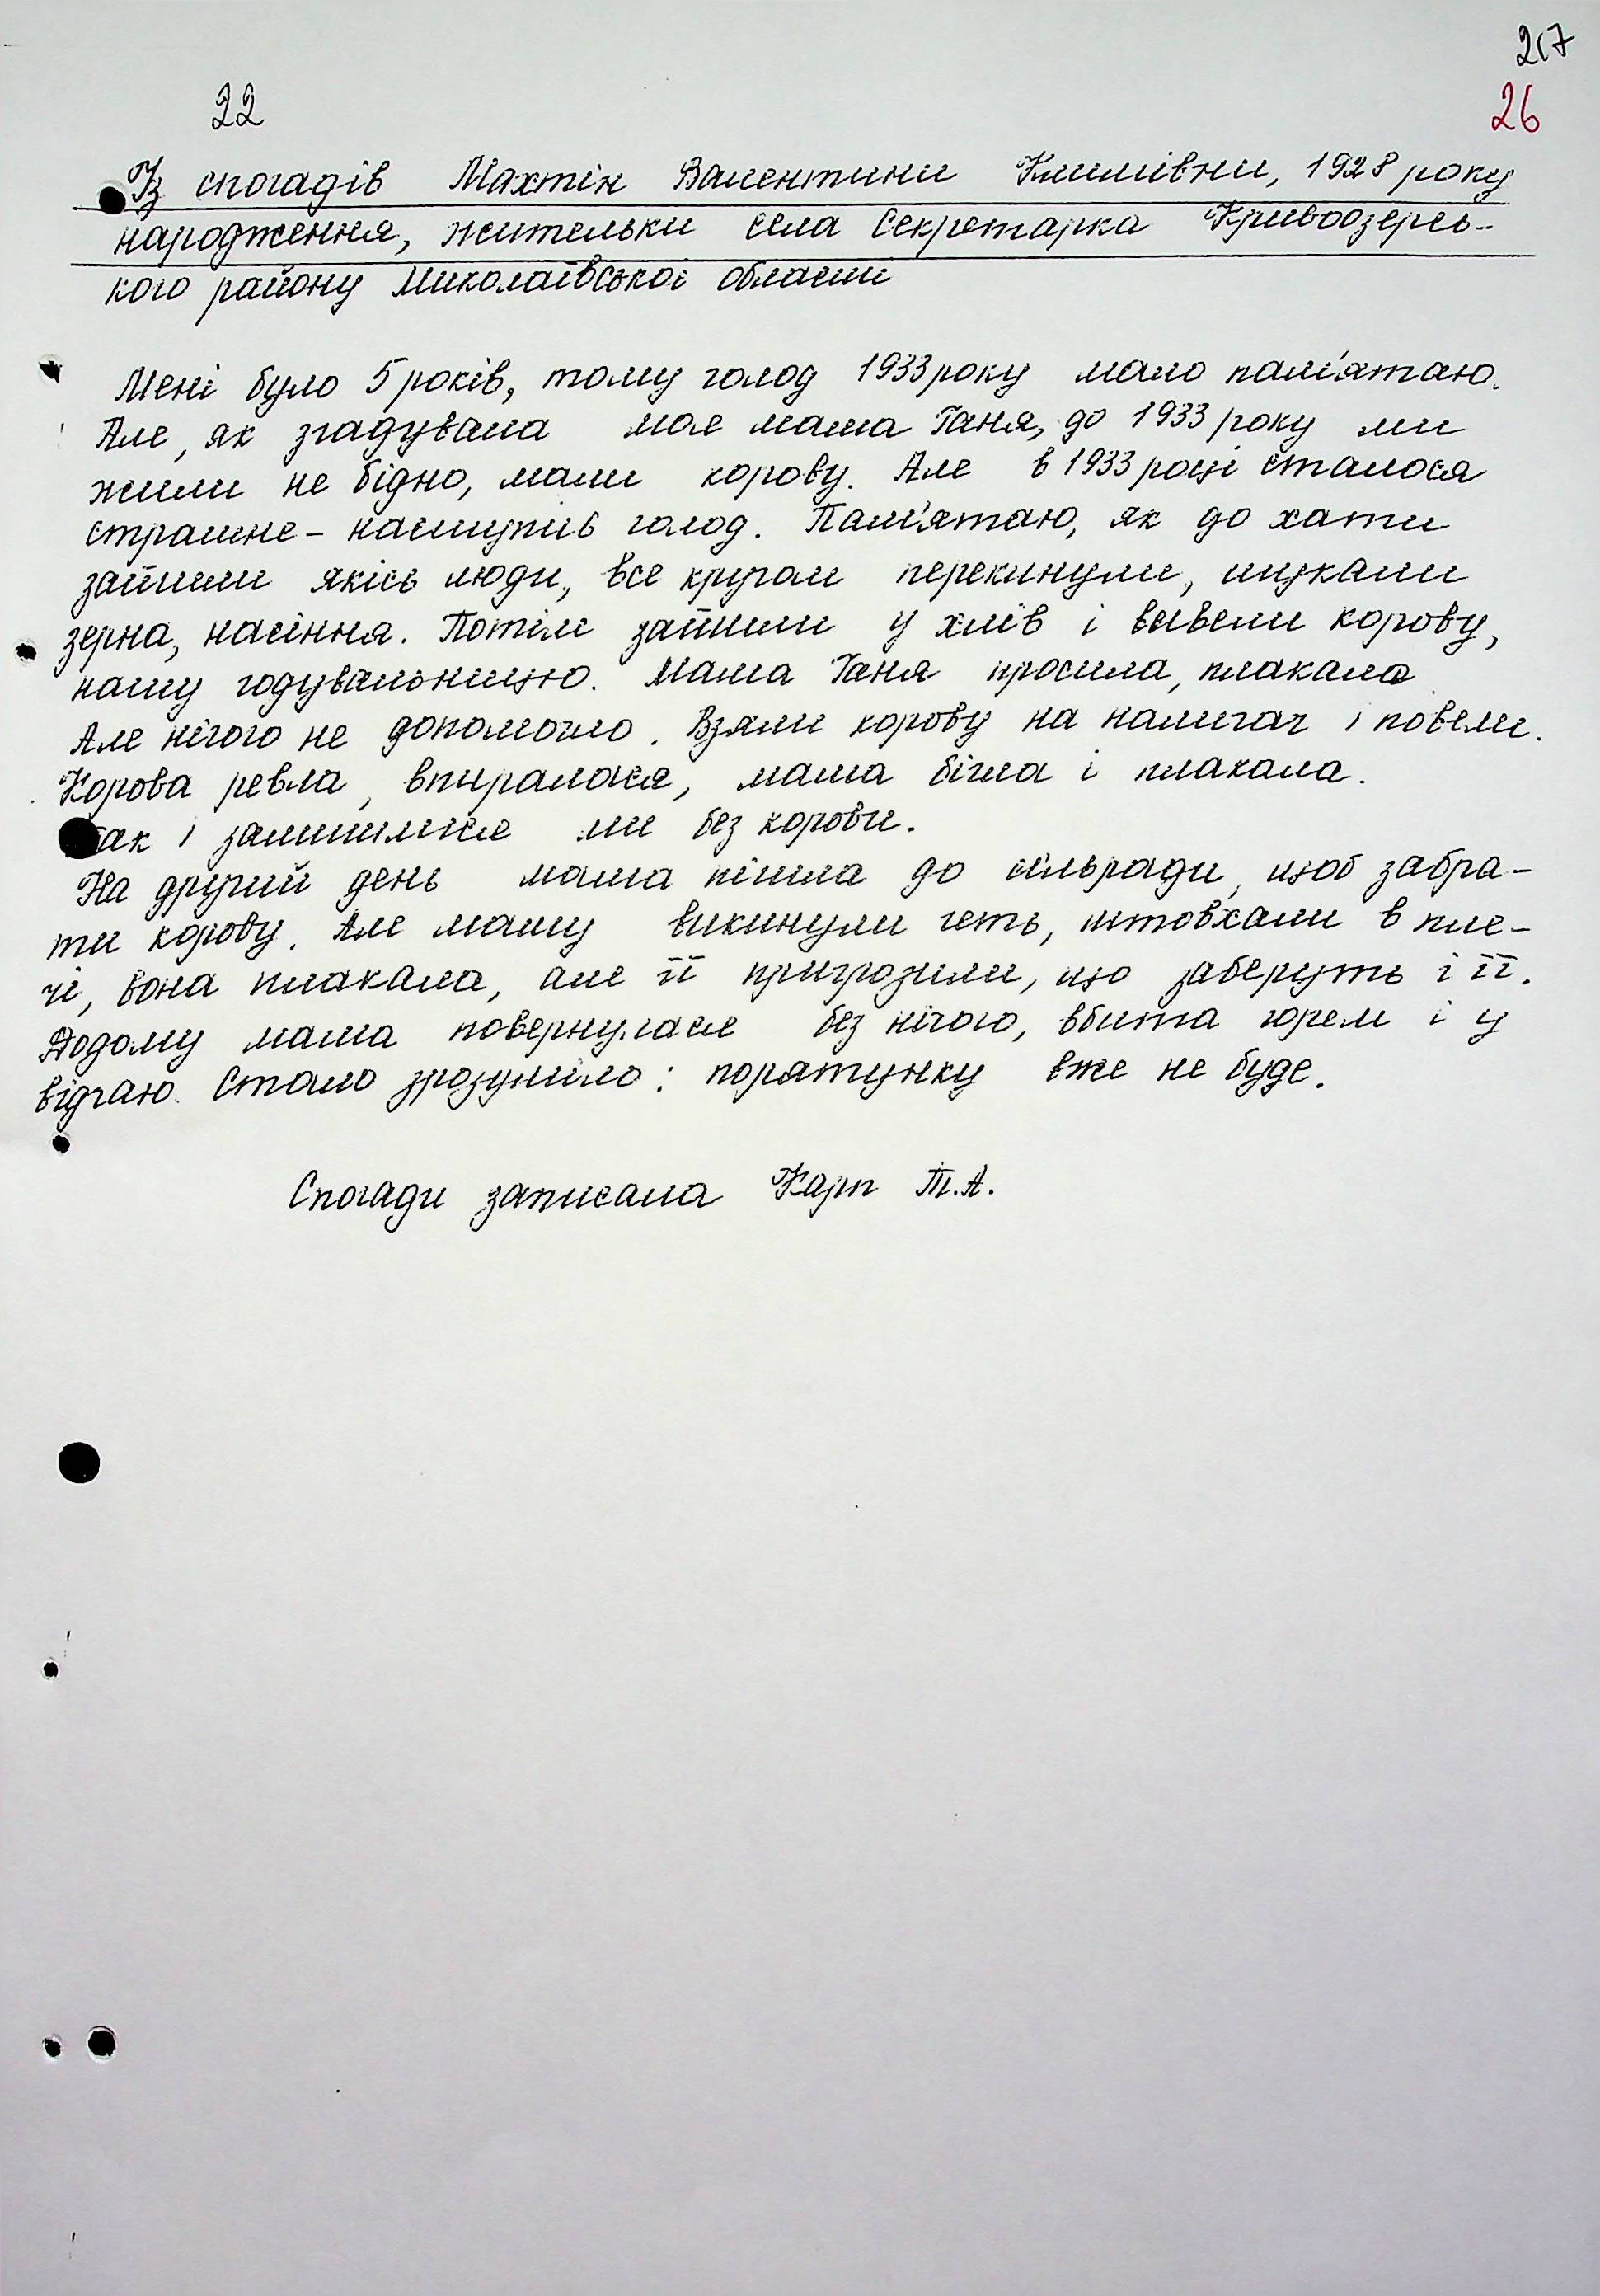 217
22
26
Із спогадів Махтін Валентини Климівни, 1928 року
народження, жительки села Секретарка Кривоозерсь-
кого району Миколаївської області
Мені було 5 років, тому голод 1933 року мало пам'ятаю.
Але, як згадувала моя мама Ганя, до 1933 року ми
жили не бідно, мали корову. Але в 1933 році сталося
страшне - наступив голод. Пам'ятаю, як до хати
зайшли якісь люди, все кругом перекинули, шукали
зерна, насіння. Потім зайшли у хлів і вивели корову,
нашу годувальницю. Мама Ганя просила, плакала
Але нічого не допомогло. Взяли корову на налигач і повели.
Корова ревла, впиралася, мама бігла і плакала.
Так і залишилися ми без корови.
На другий день мама пішла до сільради, щоб забра-
ти корову. Але маму викинули геть, штовхали в пле-
чі, вона плакала, але її пригрозили, що заберуть і її.
Додому мама повернулася без нічого, вбита горем і у
відчаю. Стало зрозуміло: порятунку вже не буде.
Спогади записала Карп Т.А.